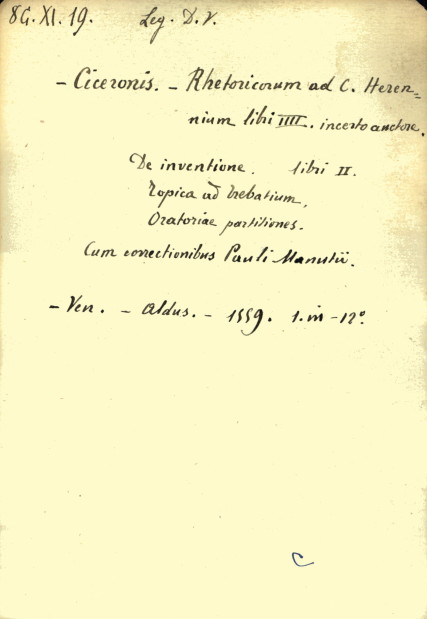 8G.XI.19. Leg. D.V.
- Ciceronis. - Rhetoricorum ad C. Heren=
nium libri IIII. incerto auctore.
De inventione. libri II.
Topica ad Trebatium,
Oratoriae partitiones.
Cum correctionibus Pauli Manutii.
- Ven. - Aldus. - 1559. 1. in - 12º.
C